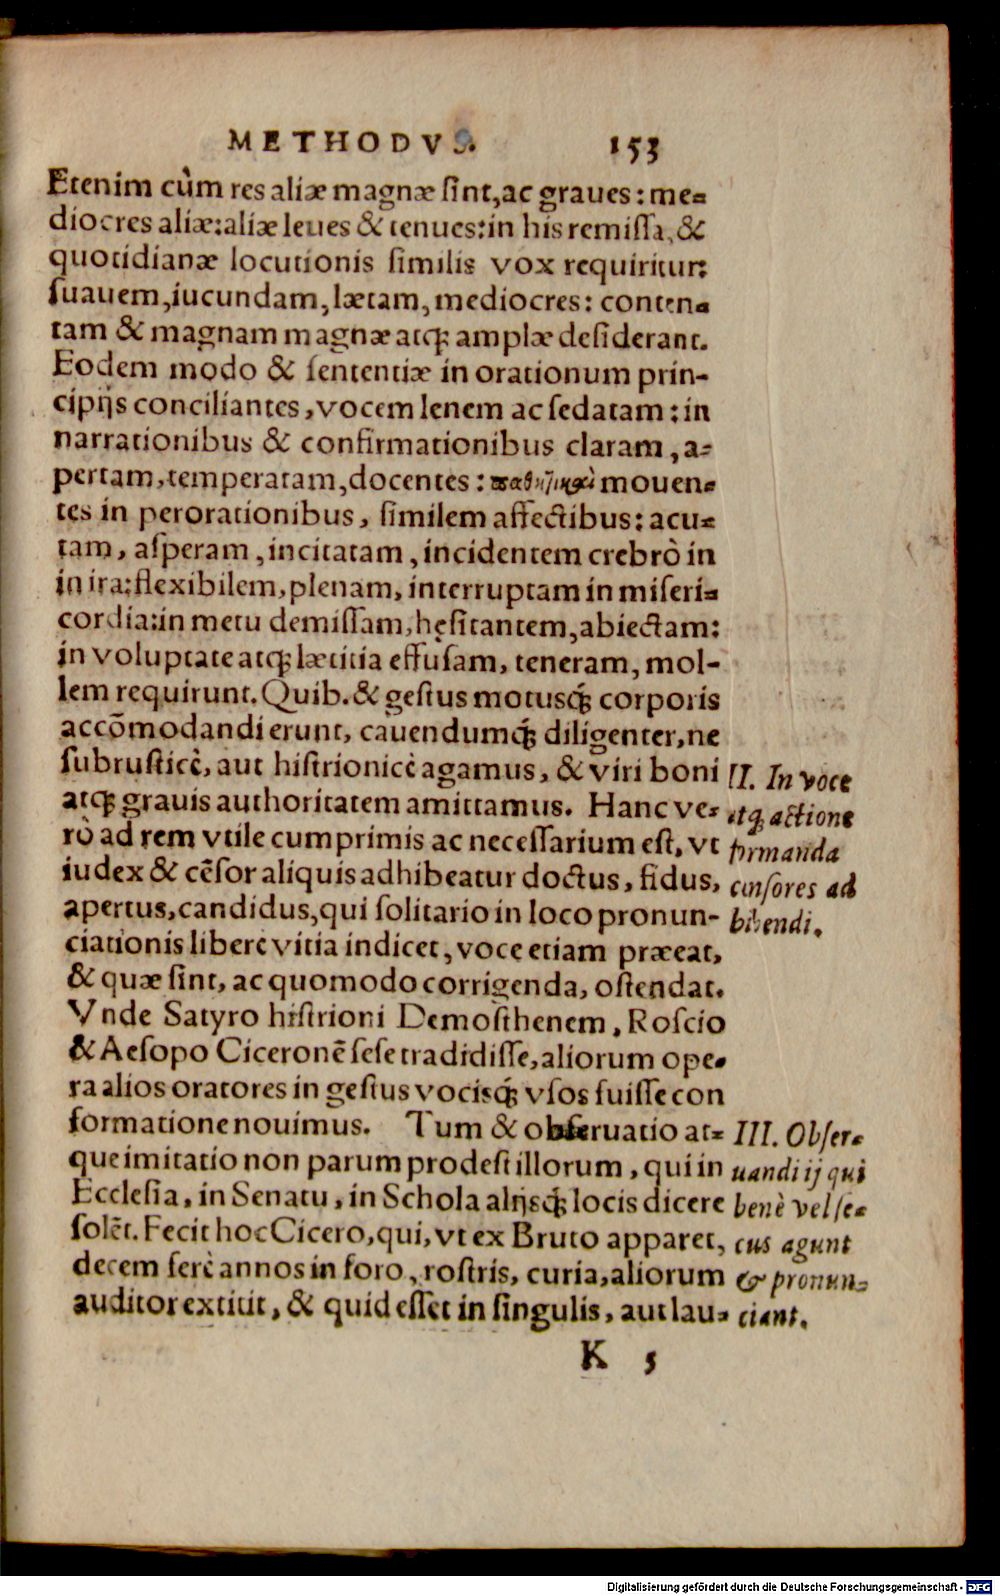 METHODVS. 153
Etenim cùm res aliæ magnæ ſint, ac graues: me-
diocres aliæ: aliæ leues & tenues: in his remiſſa, &
quotidianæ locutionis ſimilis vox requiritur:
ſuauem, iucundam, lætam, mediocres: conten-
tam & magnam magnæ atq; amplæ deſiderant.
Eodem modo & ſententiæ in orationum prin-
cipijs conciliantes, vocem lenem ac ſedatam: in
narrationibus & confirmationibus claram, a-
pertam, temperatam, docentes: mouen-
tes in perorationibus, ſimilem affectibus: acu-
tam, aſperam, incitatam, incidentem crebrò in
in ira: flexibilem, plenam, interruptam in miſeri-
cordia: in metu demiſſam, hęſitantem, abiectam:
in voluptate atq; lætitia effuſam, teneram, mol-
lem requirunt. Quib. & geſtus motusq́; corporis
accōmodandi erunt, cauendumq́; diligenter, ne
ſubruſticè, aut hiſtrionicè agamus, & viri boni
atq; grauis authoritatem amittamus. Hanc ve-
rò ad rem vtile cumprimis ac neceſſarium eſt, vt
iudex & cēſor aliquis adhibeatur doctus, fidus,
apertus, candidus, qui ſolitario in loco pronun-
ciationis liberè vitia indicet, voce etiam præeat,
& quæ ſint, ac quomodo corrigenda, oſtendat.
Vnde Satyro hiſtrioni Demoſthenem, Roſcio
& Aeſopo Ciceronē ſeſe tradidiſſe, aliorum ope-
ra alios oratores in geſtus vocisq́; vſos fuiſſe con
formatione nouimus. Tum & obſeruatio at-
que imitatio non parum prodeſt illorum, qui in
Eccleſia, in Senatu, in Schola alijsq́; locis dicere
ſolēt. Fecit hoc Cicero, qui, vt ex Bruto apparet,
decem ferè annos in foro, roſtris, curia, aliorum
auditor extitit, & quid eſſet in ſingulis, aut lau-
II. In voce
atq; actione
formanda
cenſores ad
hibendi.
III. Obſer-
uandi ij qui
benè vel ſe-
cus agunt
& pronun-
ciant.
K 5
Digitalisierung gefördert durch die Deutsche Forschungsgemeinschaft - DFG